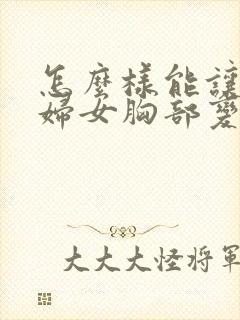 怎麼樣能讓
婦女胸部變
大大大怪將軍